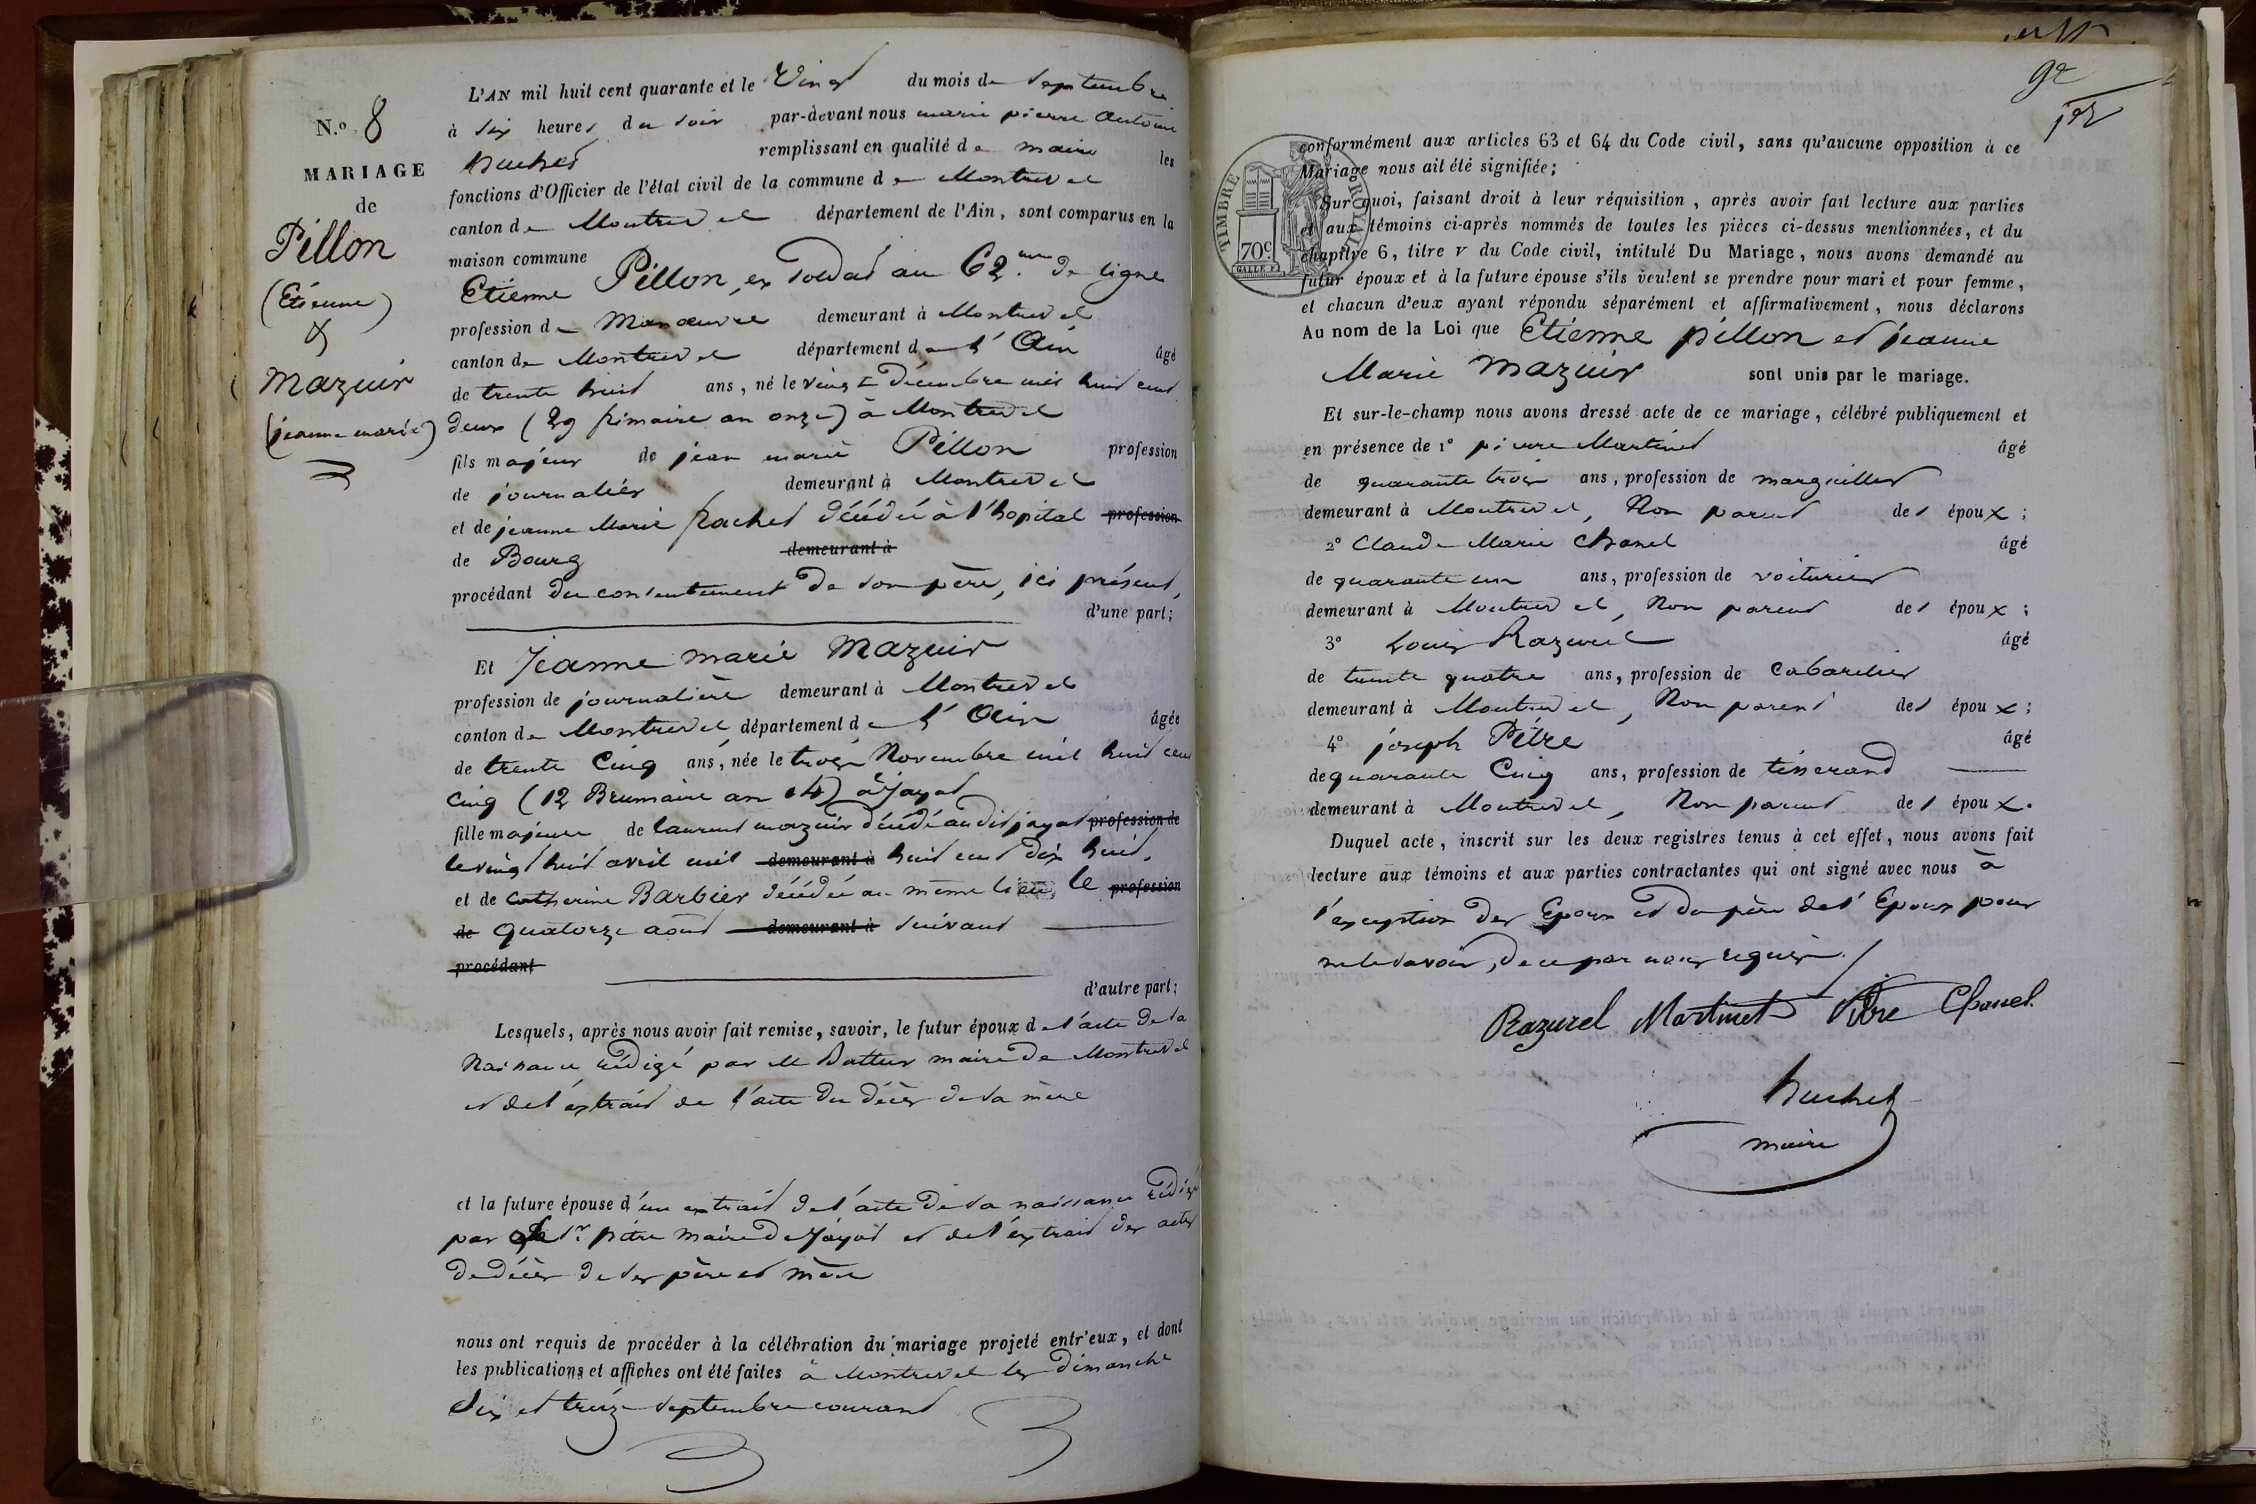 N.o 8
MARIAGE
de
Pillon
(Etienne)
&
Mazuir
(jeanne marie)
L'AN mil huit cent quarante et le Vingt du mois de septembre
à six heures du soir par-devant nous marie pierre Antoine
huchet remplissant en qualité de maire les
fonctions d'Officier de l'état civil de la commune de Montrevel
canton de Montrevel département de l'Ain, sont comparus en la
maison commune
Etienne Pillon, ex soldat au 62.me de ligne
profession de Manœuvre demeurant à Montrevel
canton de Montrevel département de l'Ain âgé
de trente huit ans, né le vingt décembre mil huit cent
deux (29 frimaire an onze) à Montrevel
fils majeur de jean marie Pillon profession
de journalier demeurant à Montrevel
et de jeanne Marie Rachet décédée à l'hopital profession
de Bourg demeurant à
procédant du consentement de son père, ici présent,
d'une part;
Et Jeanne marie Mazuir
profession de journalière demeurant à Montrevel
canton de Montrevel département de l'Ain âgée
de trente Cinq ans, née le trois Novembre mil huit cent
Cinq (12 Brumaire an 14) à Jayat
fille majeure de laurent mazuir décédé audit jayat profession de
le vingt huit avril mil demeurant à huit cent dix huit,
et de Catherine Barbier décédée au même lieu, le profession
de quatorze août demeurant à suivant
procédant
d'autre part;
Lesquels, après nous avoir fait remise, savoir, le futur époux de l'acte de sa
Naissance rédigé par M Dattur maire de Montrevel
et de l'extrait de l'acte du décès de sa mère
et la future épouse d'un extrait de l'acte de sa naissance rédigé
par le Sr pitre maire de Jayat et de l'extrait des actes
de décès de ses père et mère
nous ont requis de procéder à la célébration du mariage projeté entr'eux, et dont
les publications et affiches ont été faites à Montrevel les dimanche
Six et treize septembre courant
conformément aux articles 63 et 64 du Code civil, sans qu'aucune opposition à ce
Mariage nous ait été signifiée;
TIMBRE ROYAL
70c
Sur quoi, faisant droit à leur réquisition, après avoir fait lecture aux parties
et aux témoins ci-après nommés de toutes les pièces ci-dessus mentionnées, et du
chapitre 6, titre v du Code civil, intitulé Du Mariage, nous avons demandé au
futur époux et à la future épouse s'ils veulent se prendre pour mari et pour femme,
et chacun d'eux ayant répondu séparément et affirmativement, nous déclarons
Au nom de la Loi que Etienne pillon et jeanne
Marie Mazuir sont unis par le mariage.
Et sur-le-champ nous avons dressé acte de ce mariage, célébré publiquement et
en présence de 1° pierre Martinet âgé
de quarante trois ans, profession de marguiller
demeurant à Montrevel, Non parent des époux;
2° Claude Marie Chanel âgé
de quarante un ans, profession de voiturier
demeurant à Montrevel, Non parent des époux;
3° Louis Razurel âgé
de trente quatre ans, profession de Cabaretier
demeurant à Montrevel, Non parent des époux;
4° joseph Pitre âgé
de quarante Cinq ans, profession de tisserand
demeurant à Montrevel, Non parent des époux.
Duquel acte, inscrit sur les deux registres tenus à cet effet, nous avons fait
lecture aux témoins et aux parties contractantes qui ont signé avec nous à
l'exception des Epoux et du père de l'Epoux pour
ne le savoir, de ce par nous requis.
Razurel Martinet Pitre Chanel
huchet
maire